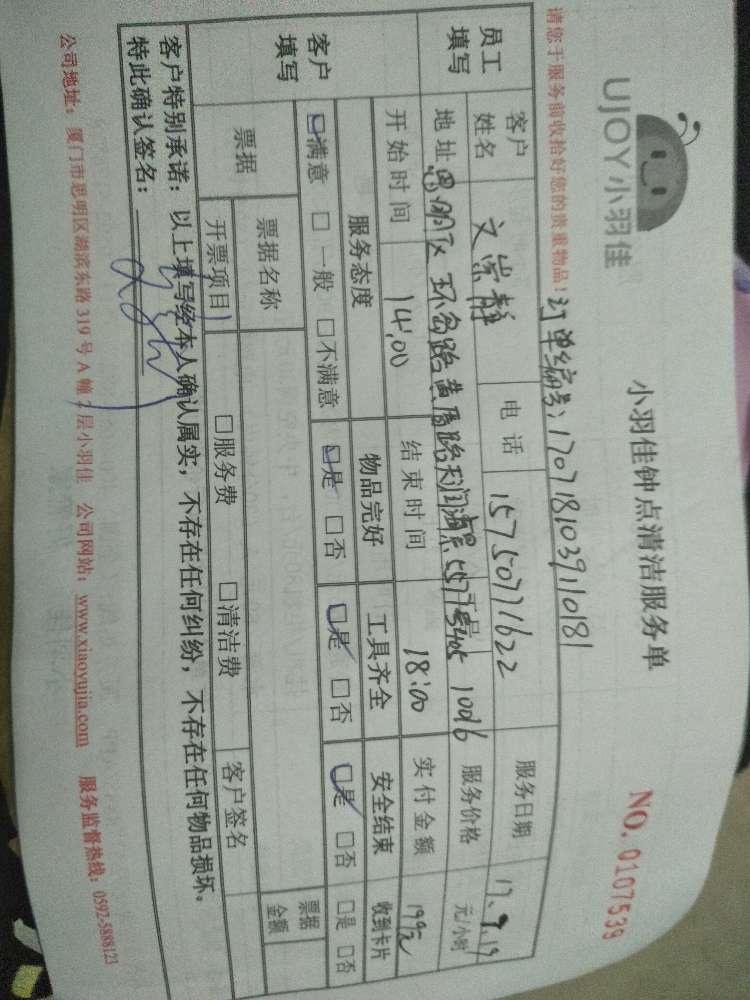 UJOY小羽佳
小羽佳钟点清洁服务单
NO. 0107539
请您于服务前收拾好您的贵重物品！订单编号：1707181039110181
员工填写 客户姓名 文崇静 电话 15750771622 服务日期 17.
地址 思明区环岛路黄厝路 557号 工号 10016 服务价格 元/小时
开始时间 14:00 结束时间 18:00 实付金额 199元
客户填写 服务态度 物品完好 工具齐全 安全结束 收到卡片
□满意 □一般 □不满意 □是 □否 □是 □否 □是 □否 □是 □否
票据 票据名称 票据金额
开票项目 □服务费 □清洁费 客户签名
客户特别承诺：以上填写经本人确认属实，不存在任何纠纷，不存在任何物品损坏。
特此确认签名：
公司地址：厦门市思明区湖滨东路319号A幢2层小羽佳 公司网站：www.xiaoyujia.com 服务监督热线：0592-5888123